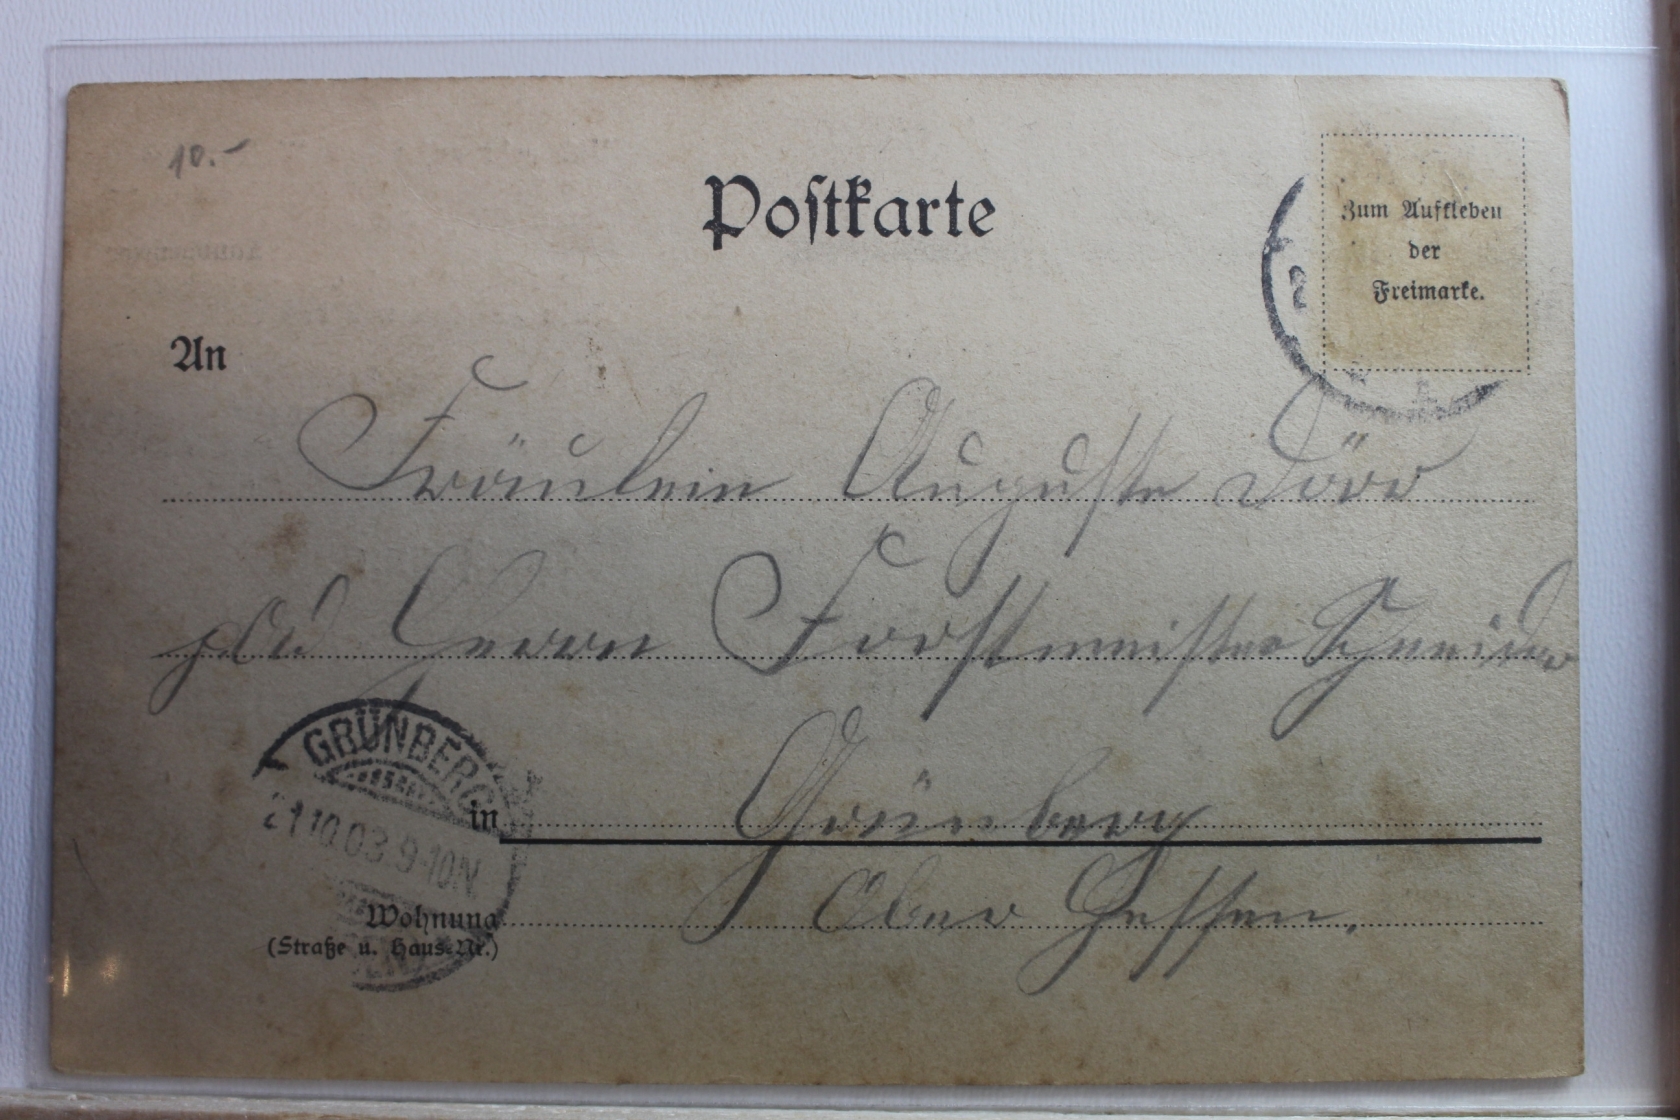 10.-
Postkarte
Zum Aufkleben
der
Freimarke.
An
Fräulein Auguste Dörr
Herrn Forstmeister Schneider
GRÜNBERG
21.10.03.9-10N.
in Grünberg
Wohnung Ober Hessen.
(Straße u. Haus-Nr.)